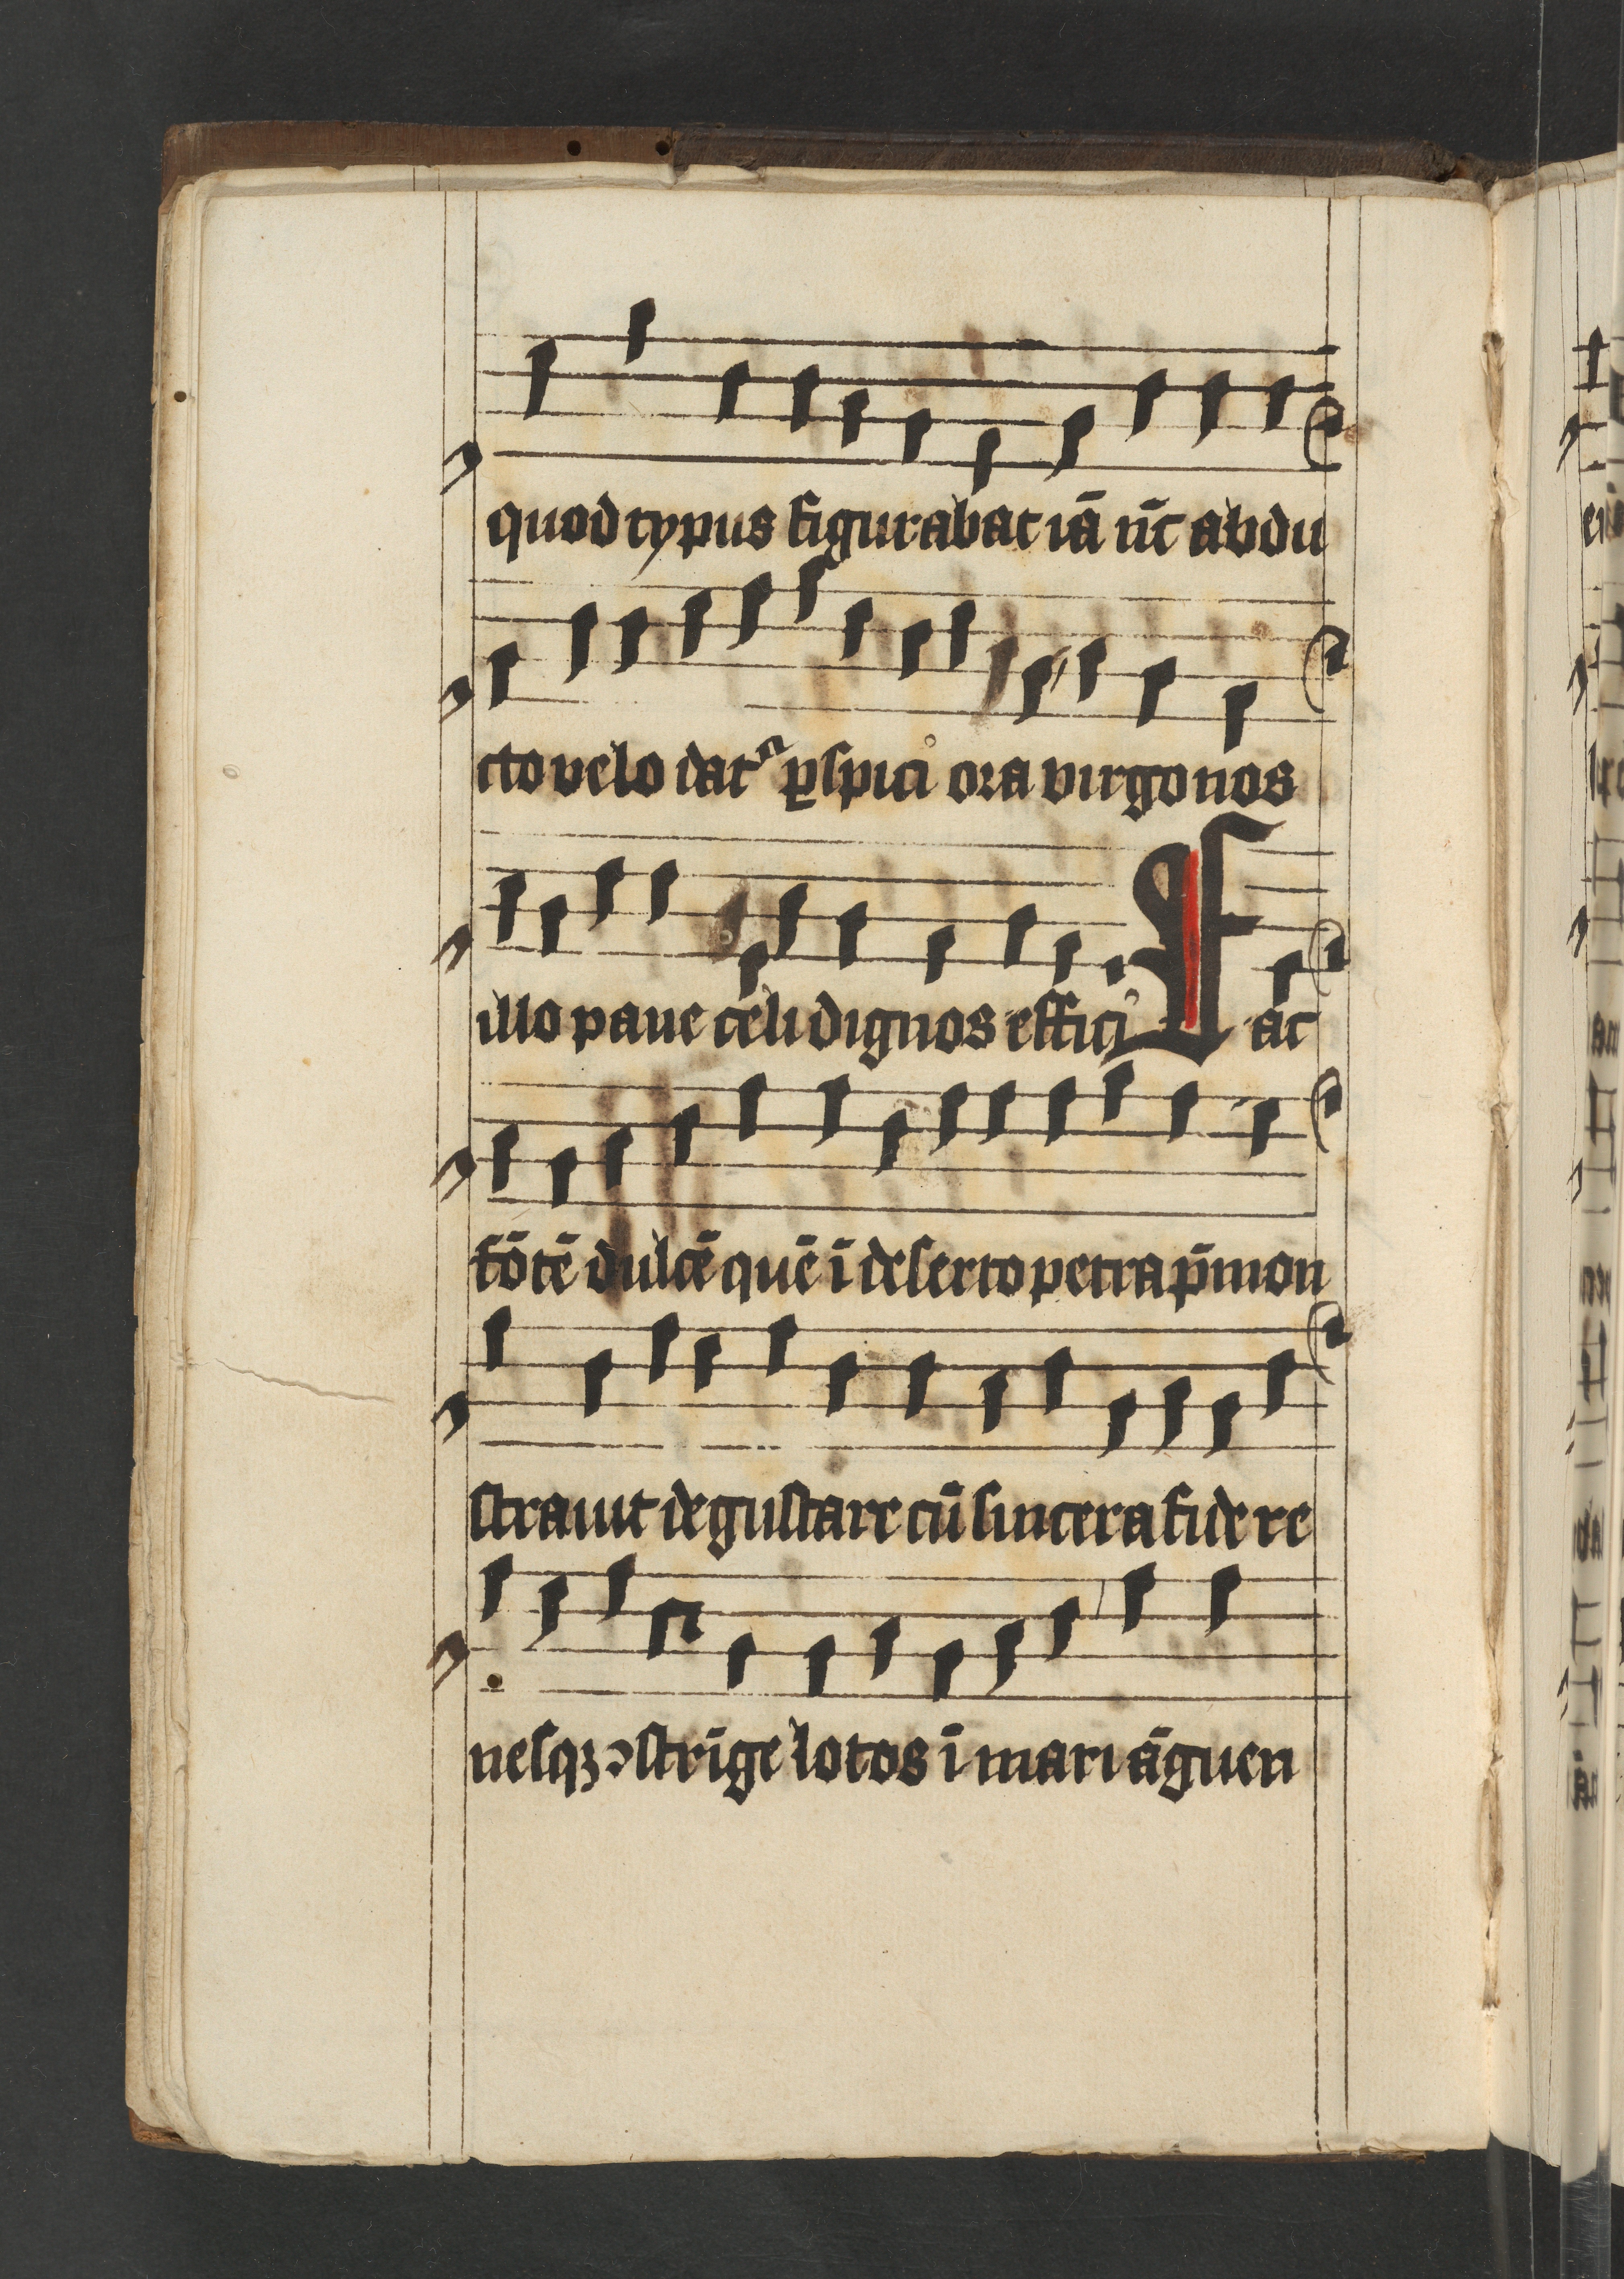 quod typus figurabat iā nūc abdu
cto velo datᷣ ꝑspici ora virgo nos
illo pane celi dignos effici Fac
fōtē dulcē quē ī deserto petra p̄mon
strauit degustare cū sincera fide re
nesqꝫ ꝯstrīge lotos ī mari āguen